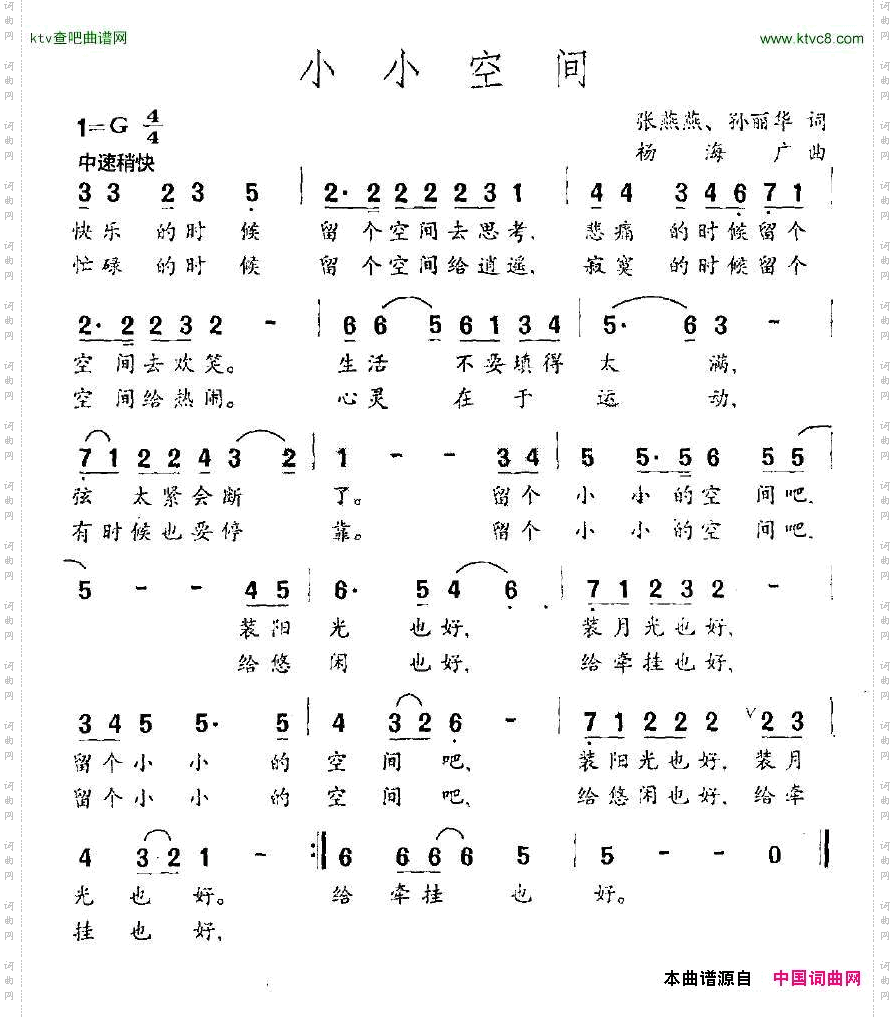 ktv查吧曲谱网
www.ktvc8.com
小小空间
1=G 4/4
张燕燕、孙丽华 词
中速稍快
杨海广 曲
3 3 2 3 5 | 2· 2 2 2 2 3 1 | 4 4 3 4 6 7 1
快乐的时候 留个空间去思考, 悲痛的时候留个
忙碌的时候 留个空间给逍遥, 寂寞的时候留个
2· 2 2 3 2 - | 6 6 5 6 1 3 4 | 5· 6 3 - |
空间去欢笑。 生活不要填得太满,
空间给热闹。 心灵在于运动,
7 1 2 2 4 3 2 | 1 - - 3 4 | 5 5· 5 6 5 5 |
弦太紧会断了。 留个小小的空间吧,
有时候也要停靠。 留个小小的空间吧,
5 - - 4 5 | 6· 5 4 6 | 7 1 2 3 2 - |
装阳光也好, 装月光也好,
给悠闲也好, 给牵挂也好,
3 4 5 5· 5 | 4 3 2 6 - | 7 1 2 2 2 V 2 3 |
留个小小的空间吧, 装阳光也好, 装月
留个小小的空间吧, 给悠闲也好, 给牵
4 3 2 1 - :| 6 6 6 6 6 5 | 5 - - 0 ||
光也好。 给牵挂也好。
挂也好,
本曲谱源自 中国词曲网